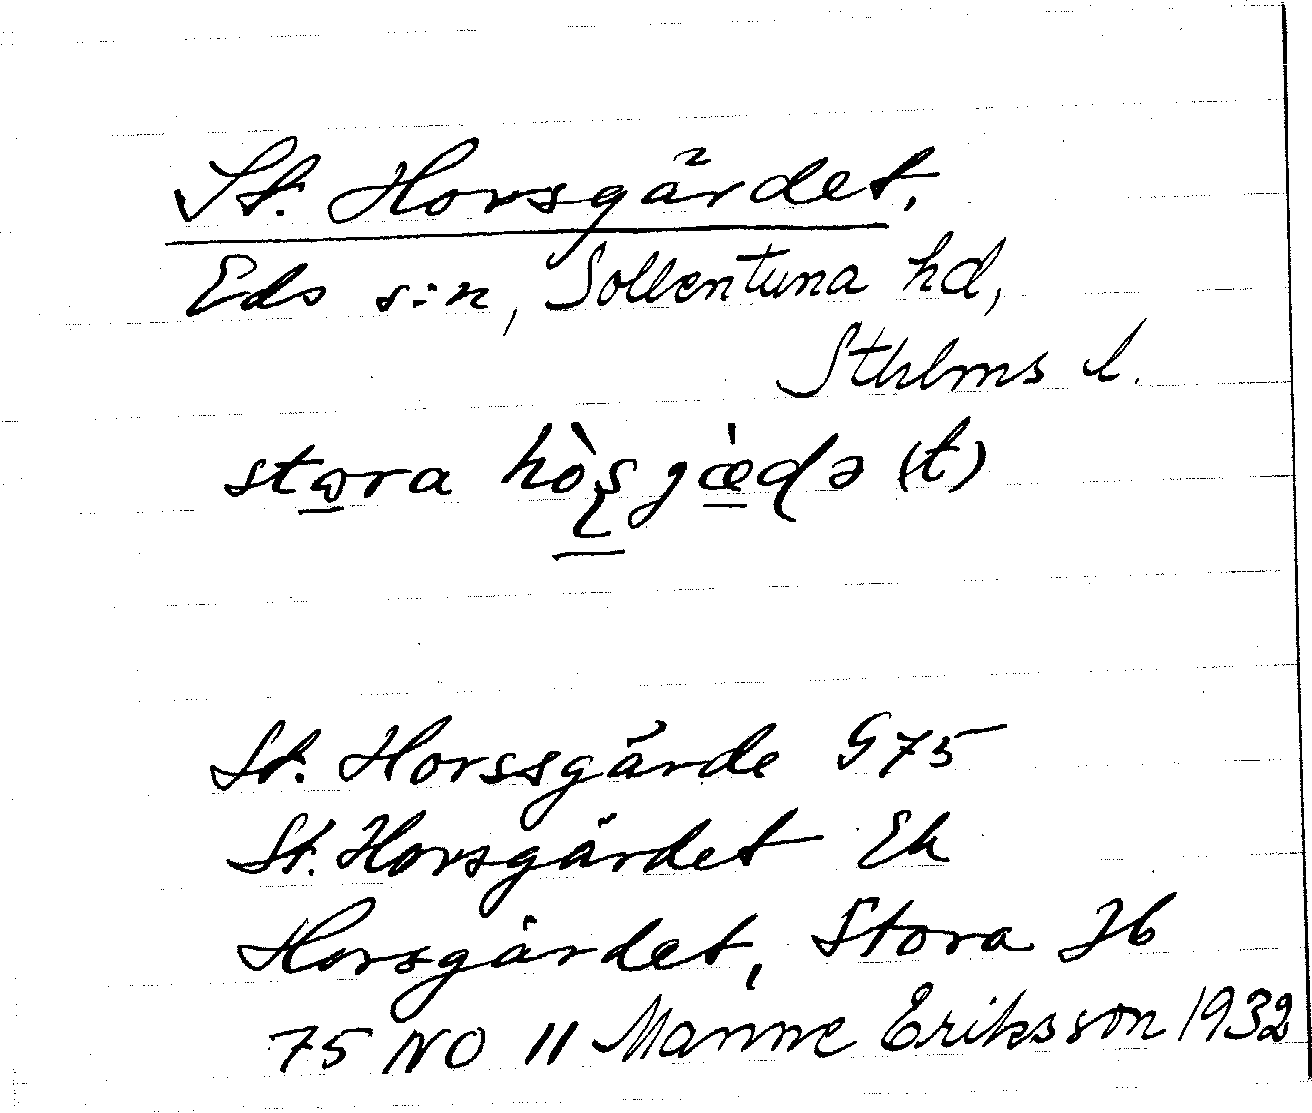 St. Horsgärdet.
Eds s:n, Sollentuna hd,
Sthlms l.
stora hòʂgæ̀ɖə (t)
St. Horssgärde G75
St. Horsgärdet Ek
Horsgärdet, Stora Jb
75 NO 11 Manne Eriksson 1932